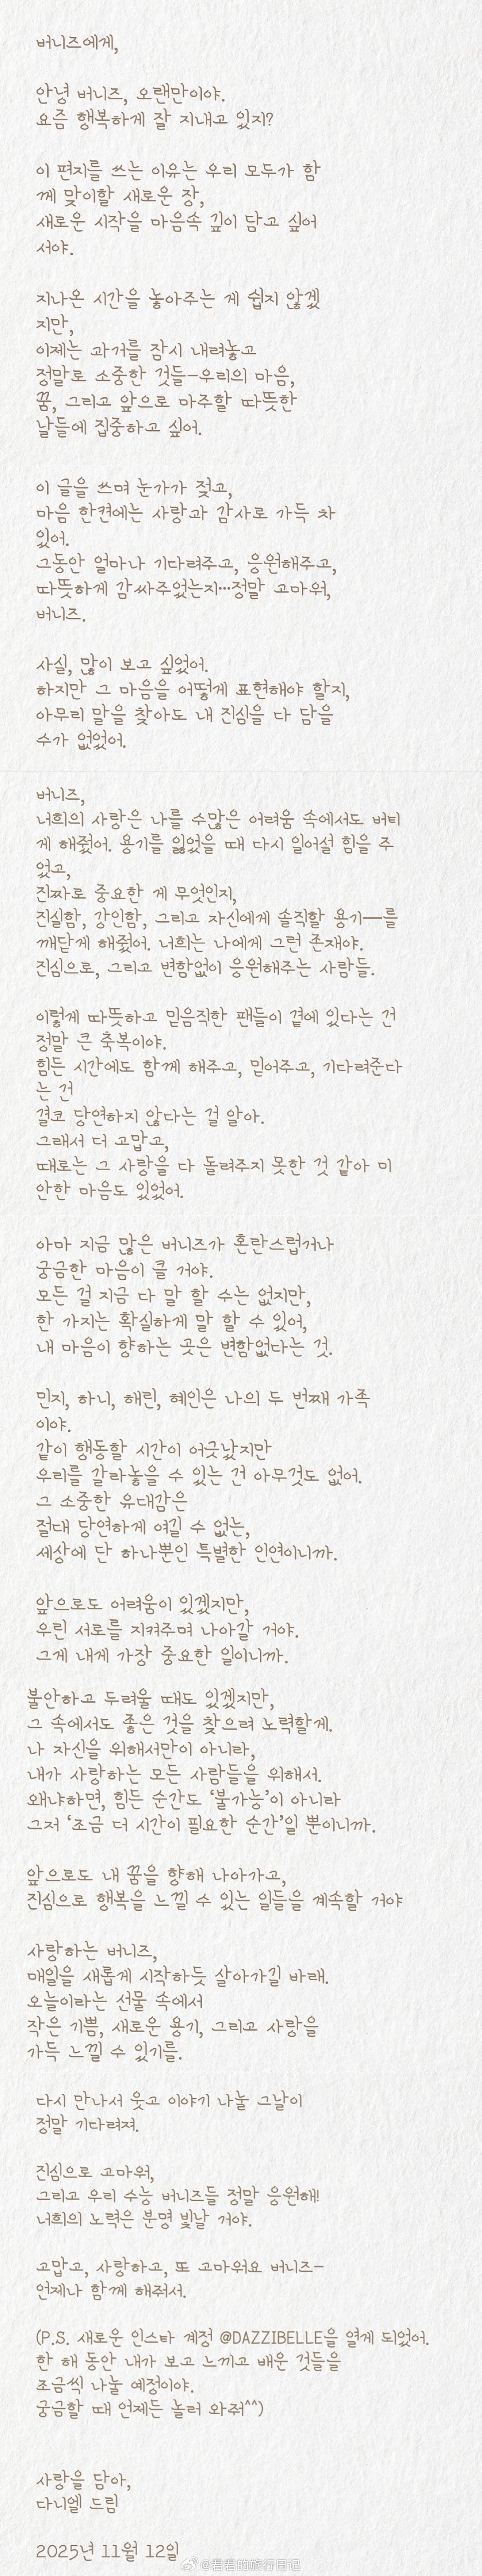 버니즈에게,
안녕 버니즈, 오랜만이야.
요즘 행복하게 잘 지내고 있지?
이 편지를 쓰는 이유는 우리 모두가 함
께 맞이할 새로운 장,
새로운 시작을 마음속 깊이 담고 싶어
서야.
지나온 시간을 놓아주는 게 쉽지 않겠
지만,
이제는 과거를 잠시 내려놓고
정말로 소중한 것들-우리의 마음,
꿈, 그리고 앞으로 마주할 따뜻한
날들에 집중하고 싶어.
이 글을 쓰며 눈가가 젖고,
마음 한켠에는 사랑과 감사로 가득 차
있어.
그동안 얼마나 기다려주고, 응원해주고,
따뜻하게 감싸주었는지…정말 고마워,
버니즈.
사실, 많이 보고 싶었어.
하지만 그 마음을 어떻게 표현해야 할지,
아무리 말을 찾아도 내 진심을 다 담을
수가 없었어.
버니즈,
너희의 사랑은 나를 수많은 어려움 속에서도 버티
게 해줬어. 용기를 잃었을 때 다시 일어설 힘을 주
었고,
진짜로 중요한 게 무엇인지,
진실함, 강인함, 그리고 자신에게 솔직할 용기—를
깨닫게 해줬어. 너희는 나에게 그런 존재야.
진심으로, 그리고 변함없이 응원해주는 사람들.
이렇게 따뜻하고 믿음직한 팬들이 곁에 있다는 건
정말 큰 축복이야.
힘든 시간에도 함께 해주고, 믿어주고, 기다려준다
는 건
결코 당연하지 않다는 걸 알아.
그래서 더 고맙고,
때로는 그 사랑을 다 돌려주지 못한 것 같아 미
안한 마음도 있었어.
아마 지금 많은 버니즈가 혼란스럽거나
궁금한 마음이 클 거야.
모든 걸 지금 다 말 할 수는 없지만,
한 가지는 확실하게 말 할 수 있어,
내 마음이 향하는 곳은 변함없다는 것.
민지, 하니, 해린, 혜인은 나의 두 번째 가족
이야.
같이 행동할 시간이 어긋났지만
우리를 갈라놓을 수 있는 건 아무것도 없어.
그 소중한 유대감은
절대 당연하게 여길 수 없는,
세상에 단 하나뿐인 특별한 인연이니까.
앞으로도 어려움이 있겠지만,
우린 서로를 지켜주며 나아갈 거야.
그게 내게 가장 중요한 일이니까.
불안하고 두려울 때도 있겠지만,
그 속에서도 좋은 것을 찾으려 노력할게.
나 자신을 위해서만이 아니라,
내가 사랑하는 모든 사람들을 위해서.
왜냐하면, 힘든 순간도 ‘불가능’이 아니라
그저 ‘조금 더 시간이 필요한 순간’일 뿐이니까.
앞으로도 내 꿈을 향해 나아가고,
진심으로 행복을 느낄 수 있는 일들을 계속할 거야
사랑하는 버니즈,
매일을 새롭게 시작하듯 살아가길 바래.
오늘이라는 선물 속에서
작은 기쁨, 새로운 용기, 그리고 사랑을
가득 느낄 수 있기를.
다시 만나서 웃고 이야기 나눌 그날이
정말 기다려져.
진심으로 고마워,
그리고 우리 수능 버니즈들 정말 응원해!
너희의 노력은 분명 빛날 거야.
고맙고, 사랑하고, 또 고마워요 버니즈-
언제나 함께 해줘서.
(P.S. 새로운 인스타 계정 @DAZZIBELLE을 열게 되었어.
한 해 동안 내가 보고 느끼고 배운 것들을
조금씩 나눌 예정이야.
궁금할 때 언제든 놀러 와줘^^)
사랑을 담아,
다니엘 드림
2025년 11월 12일
@君君的旅行日记